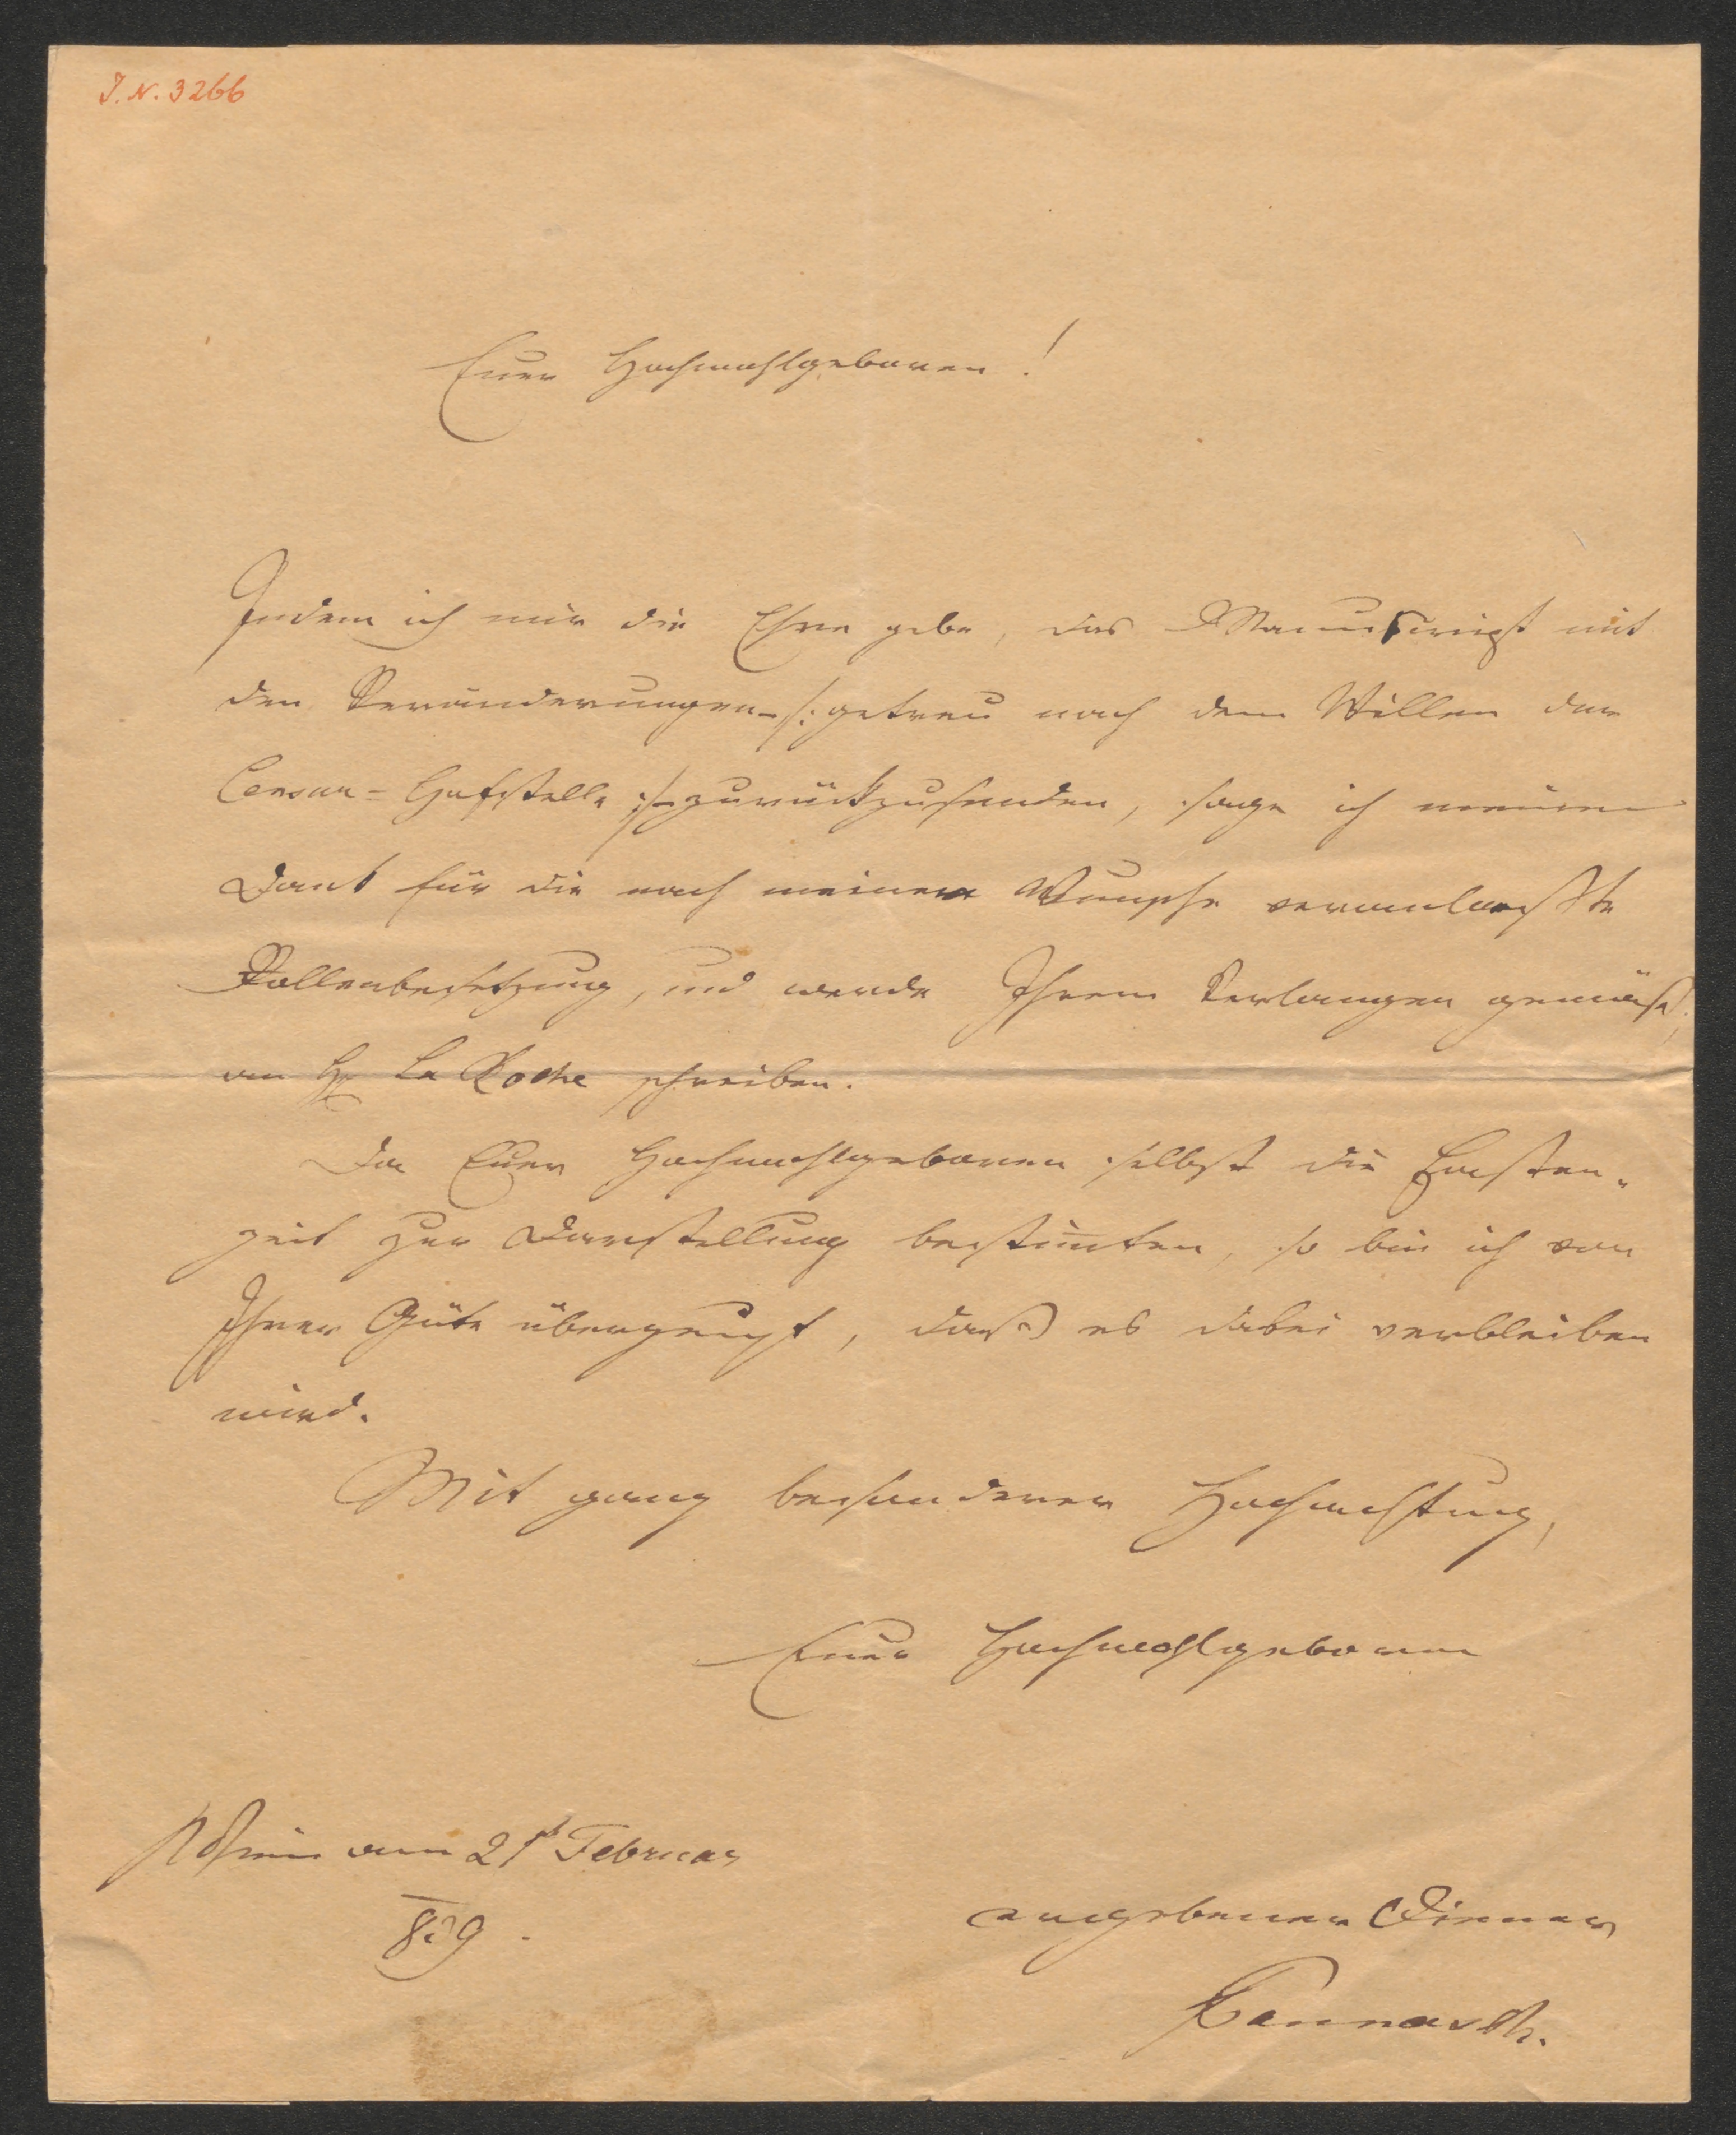 J. N. 3266
Euer Hochwohlgeboren!
Indem ich mir die Ehre gebe, das Manuscript mit
den Veränderungen /: getreu nach dem Willen der
Censur= Hofstelle :/ zurückzusenden, sage ich meinen
Dank für die nach meinem Wunsche veranlaßte
Rollenbesetzung, und werde Ihrem Verlangen gemäß,
an H. La Roche schreiben.
Da Euer Hochwohlgeboren selbst die Fasten„
zeit zur Darstellung bestim̄ten, so bin ich von
Ihrer Güte überzeugt, daß es dabei verbleiben
wird.
Mit ganz besonderer Hochachtung,
Euer Hochwohlgeboren
am 21 Februar
839.
ergebener Diener